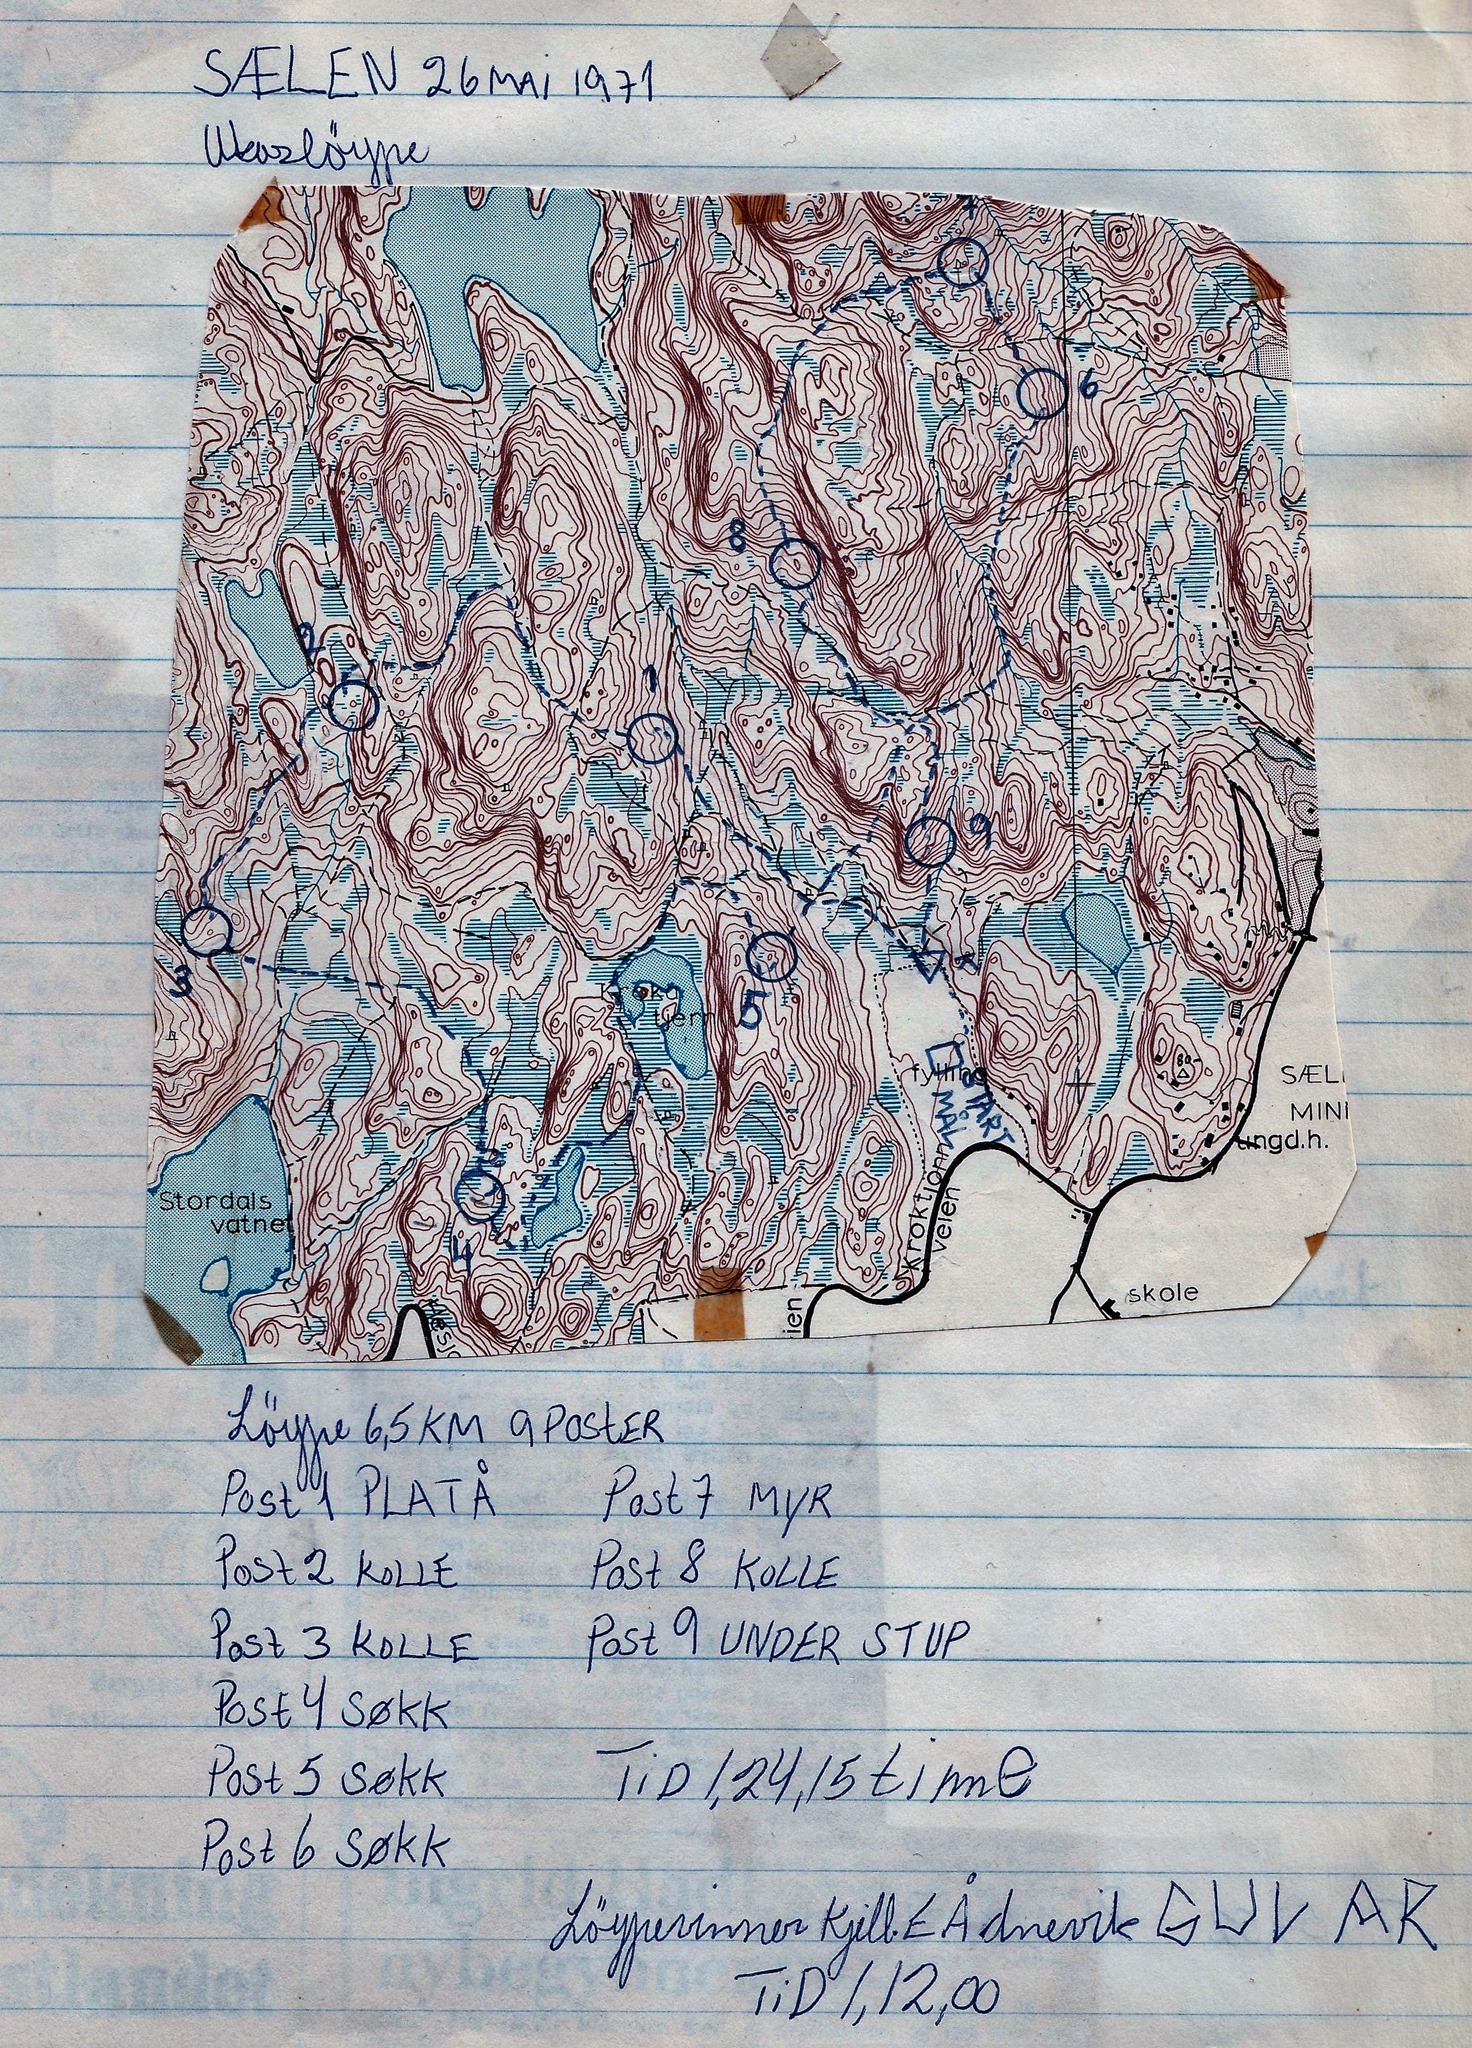 SÆLEN 26 MAI 1971
Ukasløype
7
6
8
2
1
9
3
5
Krok
tjern
SÆL
MINI
fylling
START
MÅL
ungd.h.
Stordals
vatnet
4
Kroktjønn
veien
ien
skole
Løype 6,5 KM 9 POSTER
Post 1 PLATÅ Post 7 MYR
Post 2 KOLLE Post 8 KOLLE
Post 3 KOLLE Post 9 UNDER STUP
Post 4 SØKK
Post 5 SØKK TiD 1,24,15 time
Post 6 SØKK
Løypevinner Kjell.E Ådnevik GULV AR
TiD 1,12,00